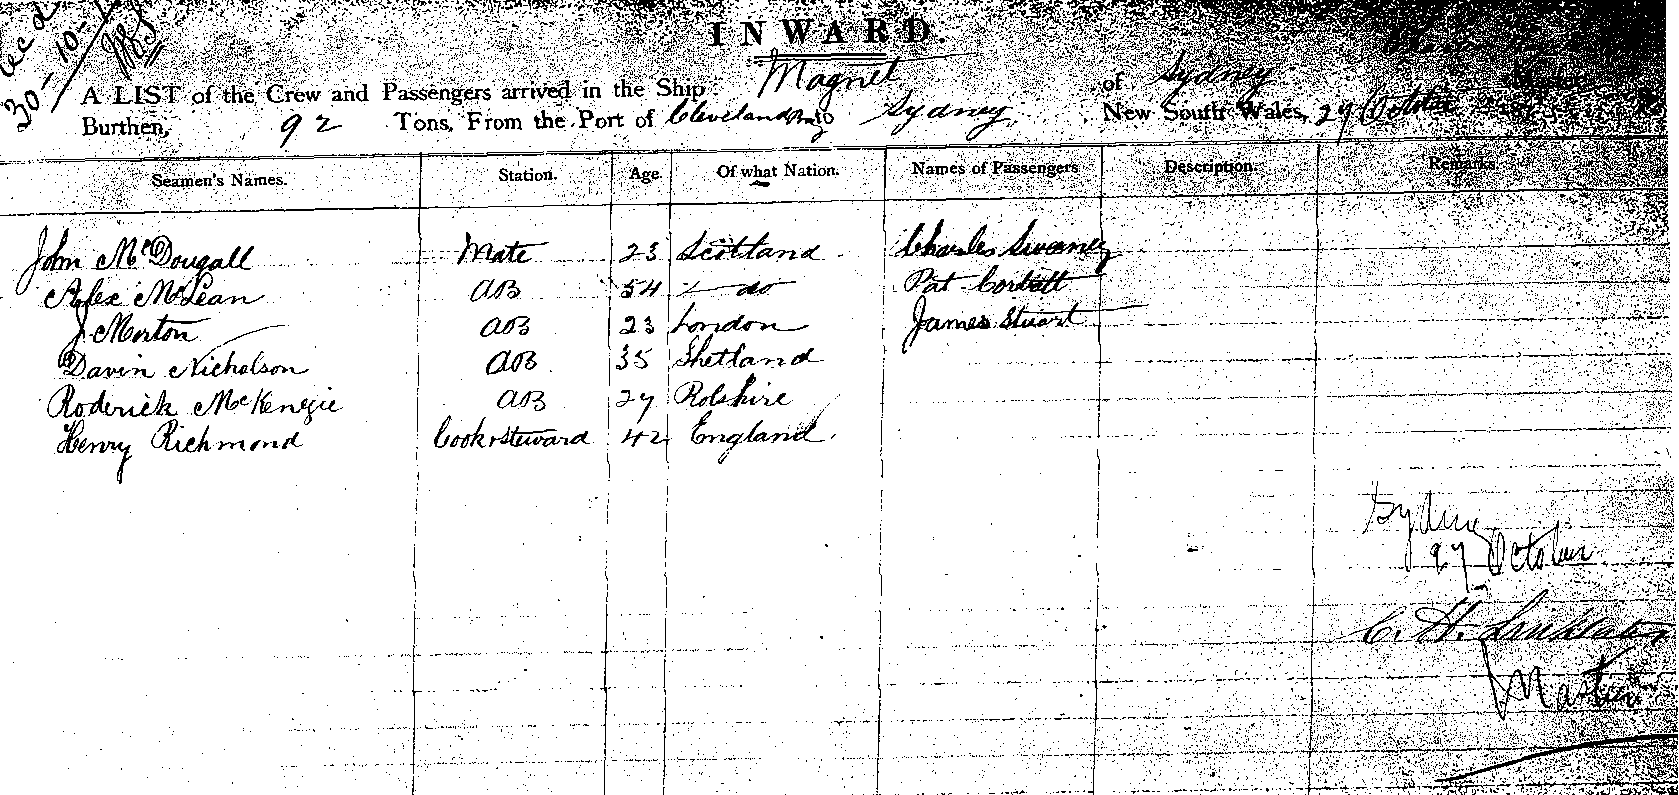 30-10-
INWARD.
A LIST of the Crew and Passengers arrived in the Ship Magnet of Sydney
Burthen, 92 Tons, From the Port of Cleveland Bay to Sydney New South Wales, 29 October
Seamen's Names. Station. Age. Of what Nation. Names of Passengers Description. Remarks
John McDougall Mate 23 Scotland Charles Sweeney
Alex McLean AB 54 do Pat Corbett
J Morton AB 23 London James Stuart
Davin Nicholson AB 35 Shetland
Roderick McKenzie AB 27 Rolshire
Henry Richmond Cook & Steward 42 England.
Sydney
27 October
C. H.
Master